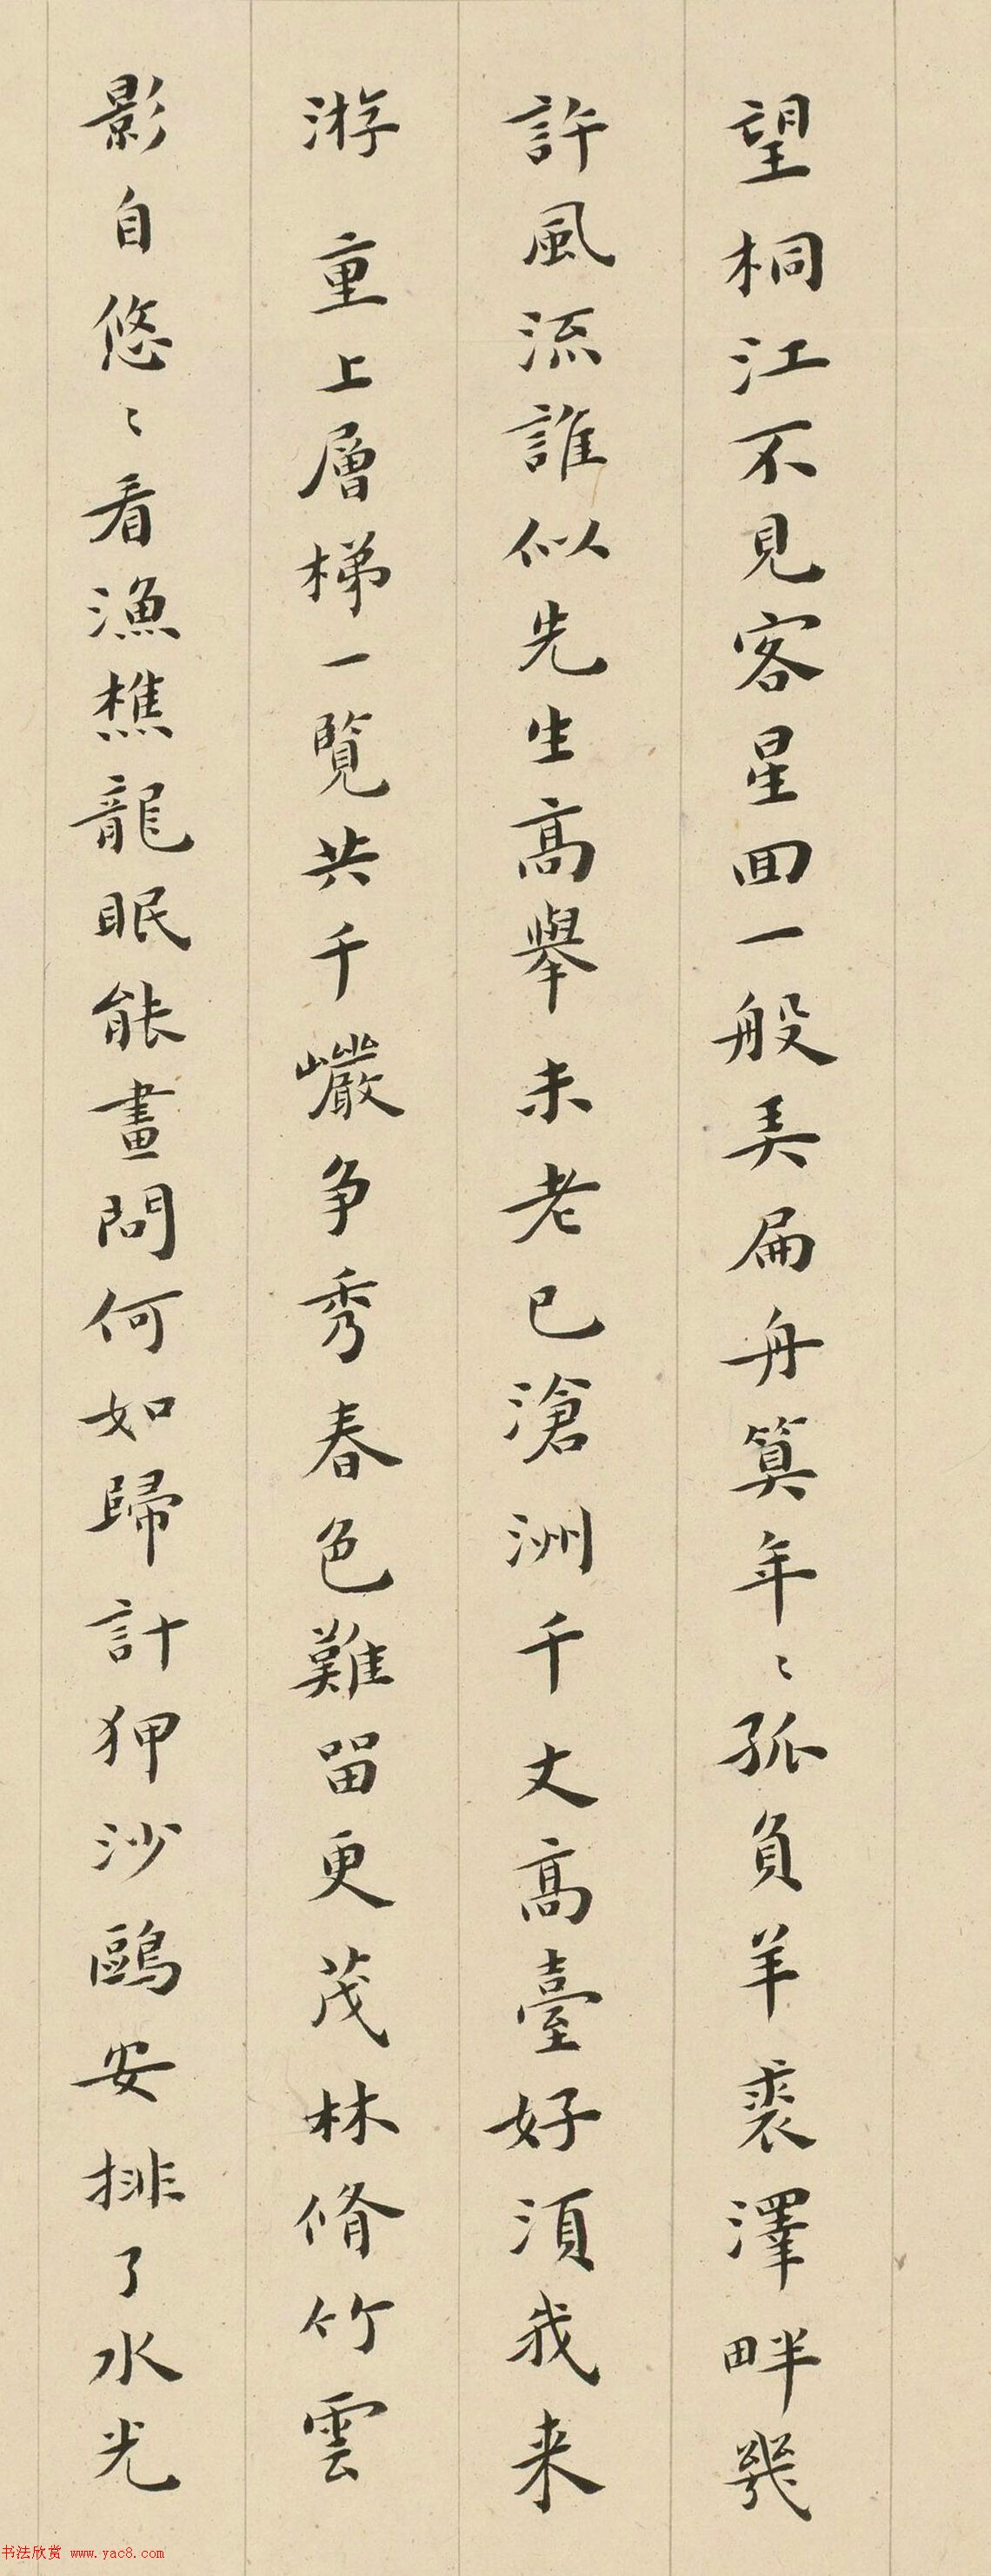 望桐江不見客星回一般美扁舟算年〻孤負羊裘澤畔幾
許風流誰似先生高舉未老已滄洲千丈高臺好須我来
游 重上層梯一覽共千巖争秀春色難留更茂林脩竹雲
影自悠〻看漁樵龍眠能畫問何如歸計狎沙鷗安排了水光
书法欣赏 www.yac8.com